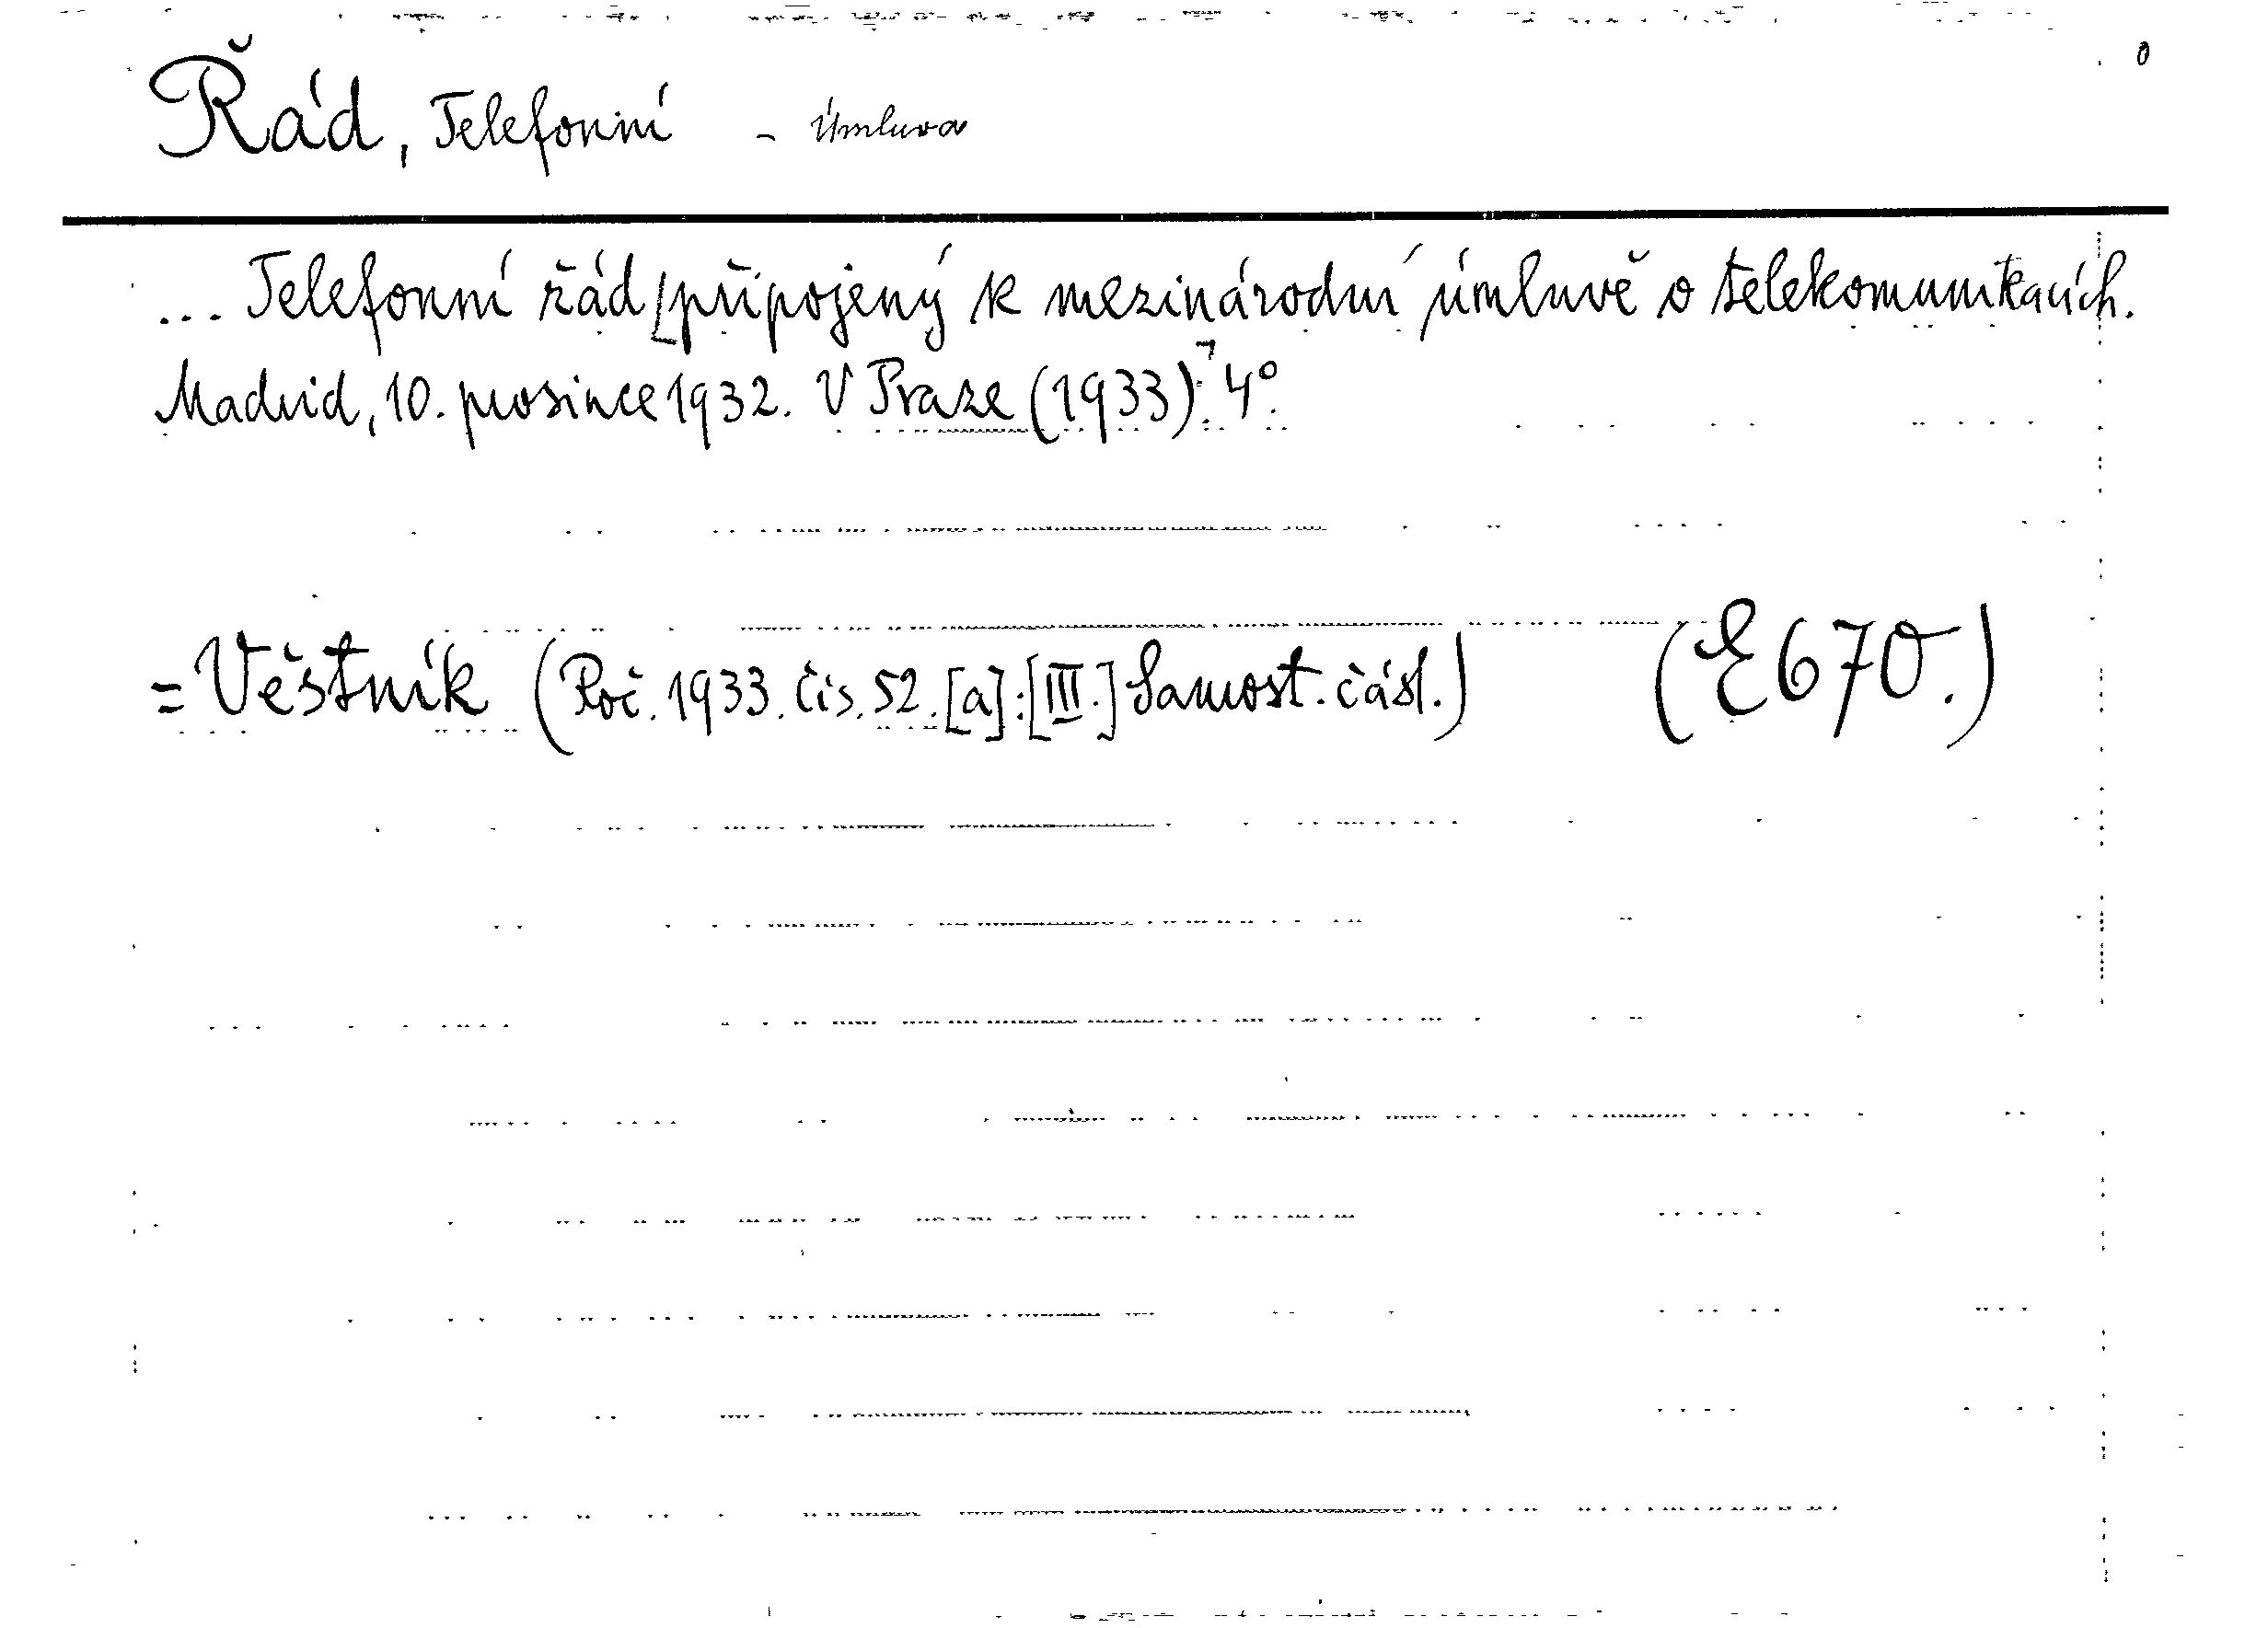 0
Řád, Telefonní - Úmluva
... Telefonní řád [připojený k mezinárodní úmluvě o telekomunikacích.
Madrid, 10. prosince 1932. V Praze (1933).] 4°.
= Věstník (Roč. 1933. čís. 52. [a]:[III.] Samost. část.) (E 670.)